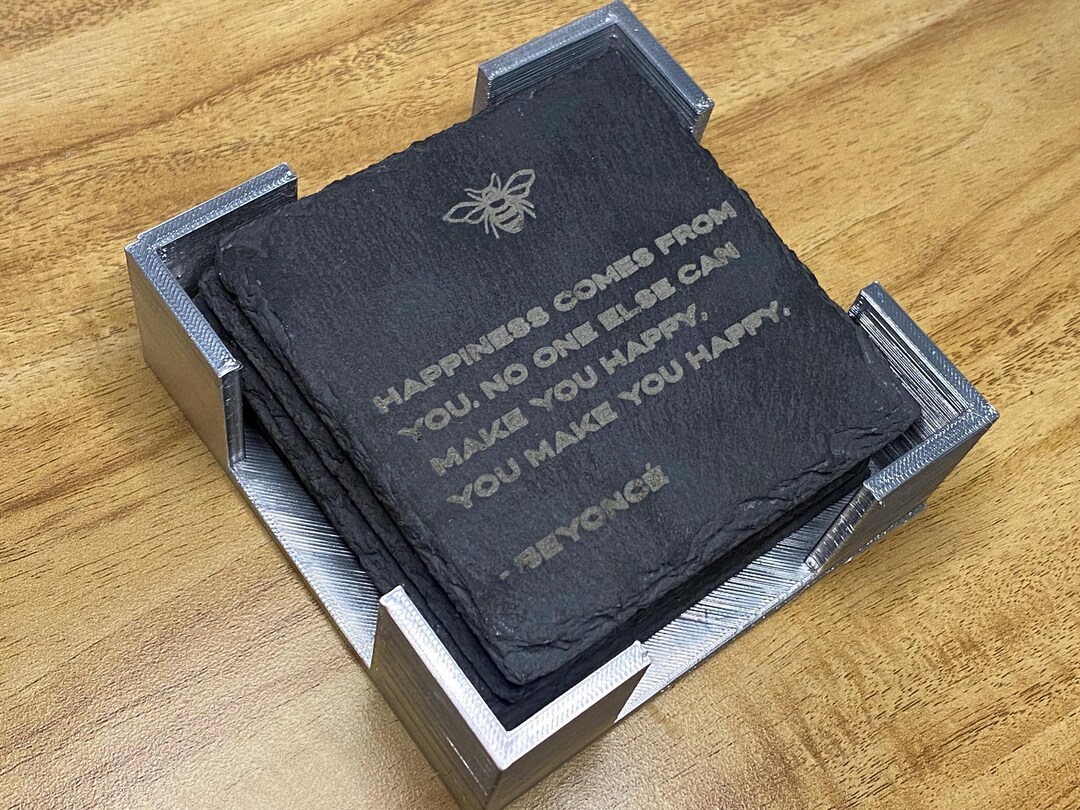 HAPPINESS COMES FROM
YOU. NO ONE ELSE CAN
MAKE YOU HAPPY.
YOU MAKE YOU HAPPY.
- BEYONCÉ